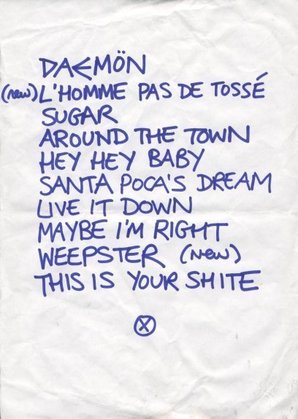 DAEMÖN
(new) L'HOMME PAS DE TOSSÉ
SUGAR
AROUND THE TOWN
HEY HEY BABY
SANTA POCA'S DREAM
LIVE IT DOWN
MAYBE I'M RIGHT
WEEPSTER (new)
THIS IS YOUR SHITE
X